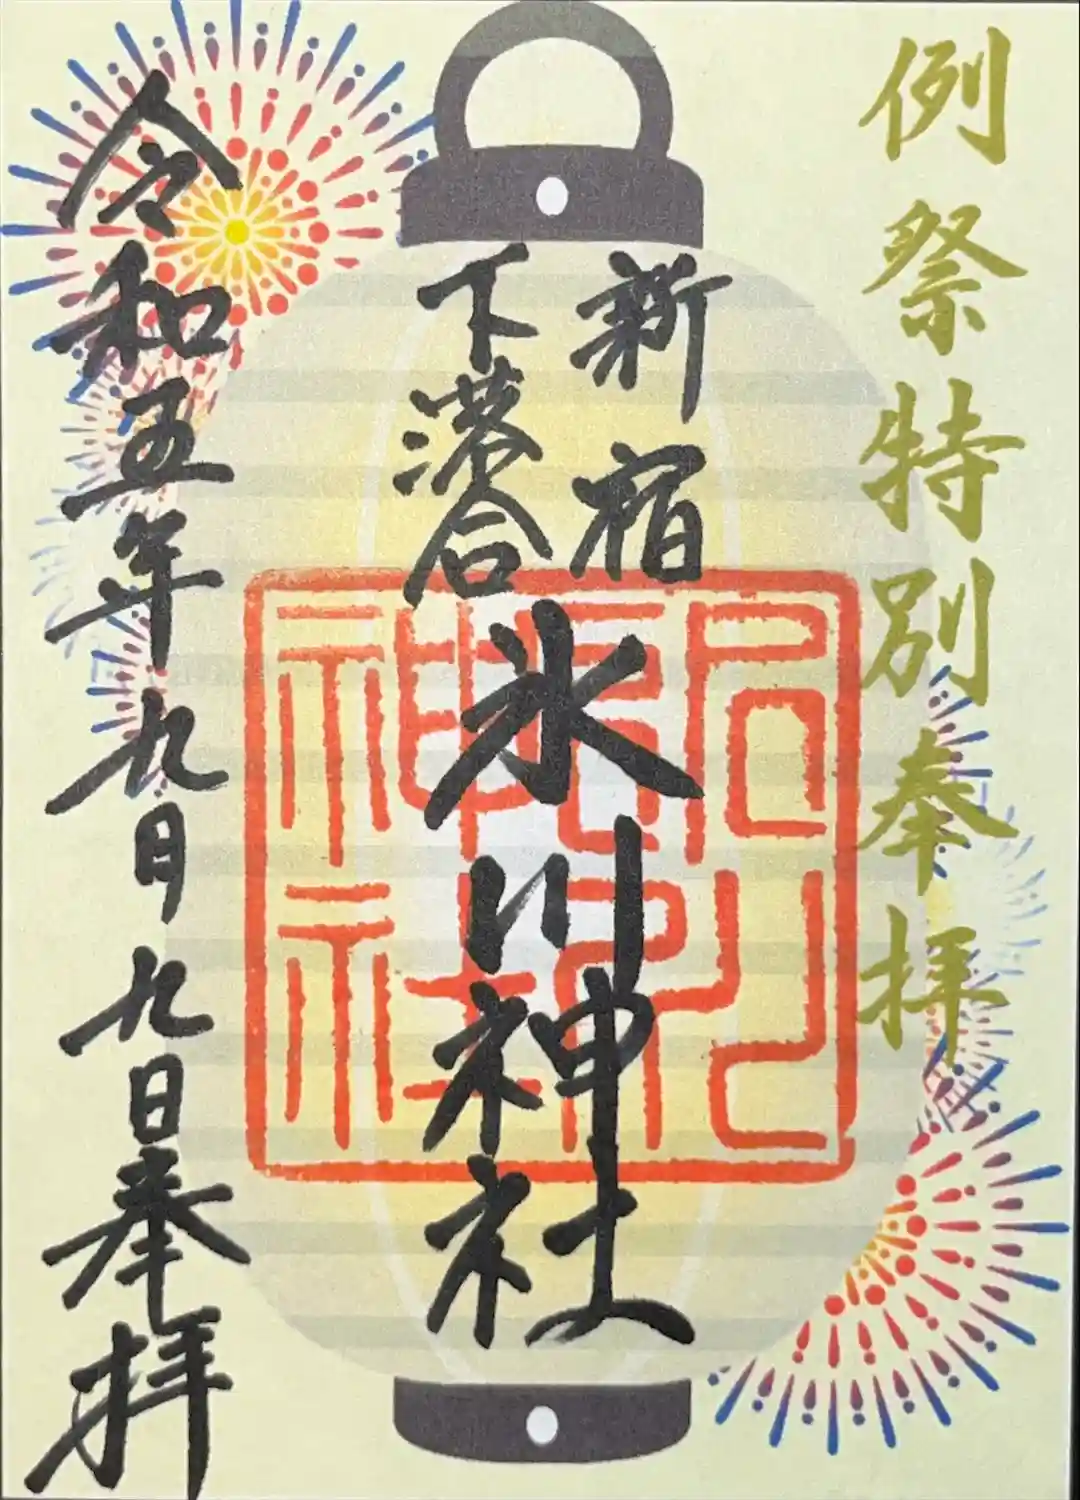 例祭特別奉拝
新宿
下落合
氷川神社
氷川神社
令和五年九月九日奉拝